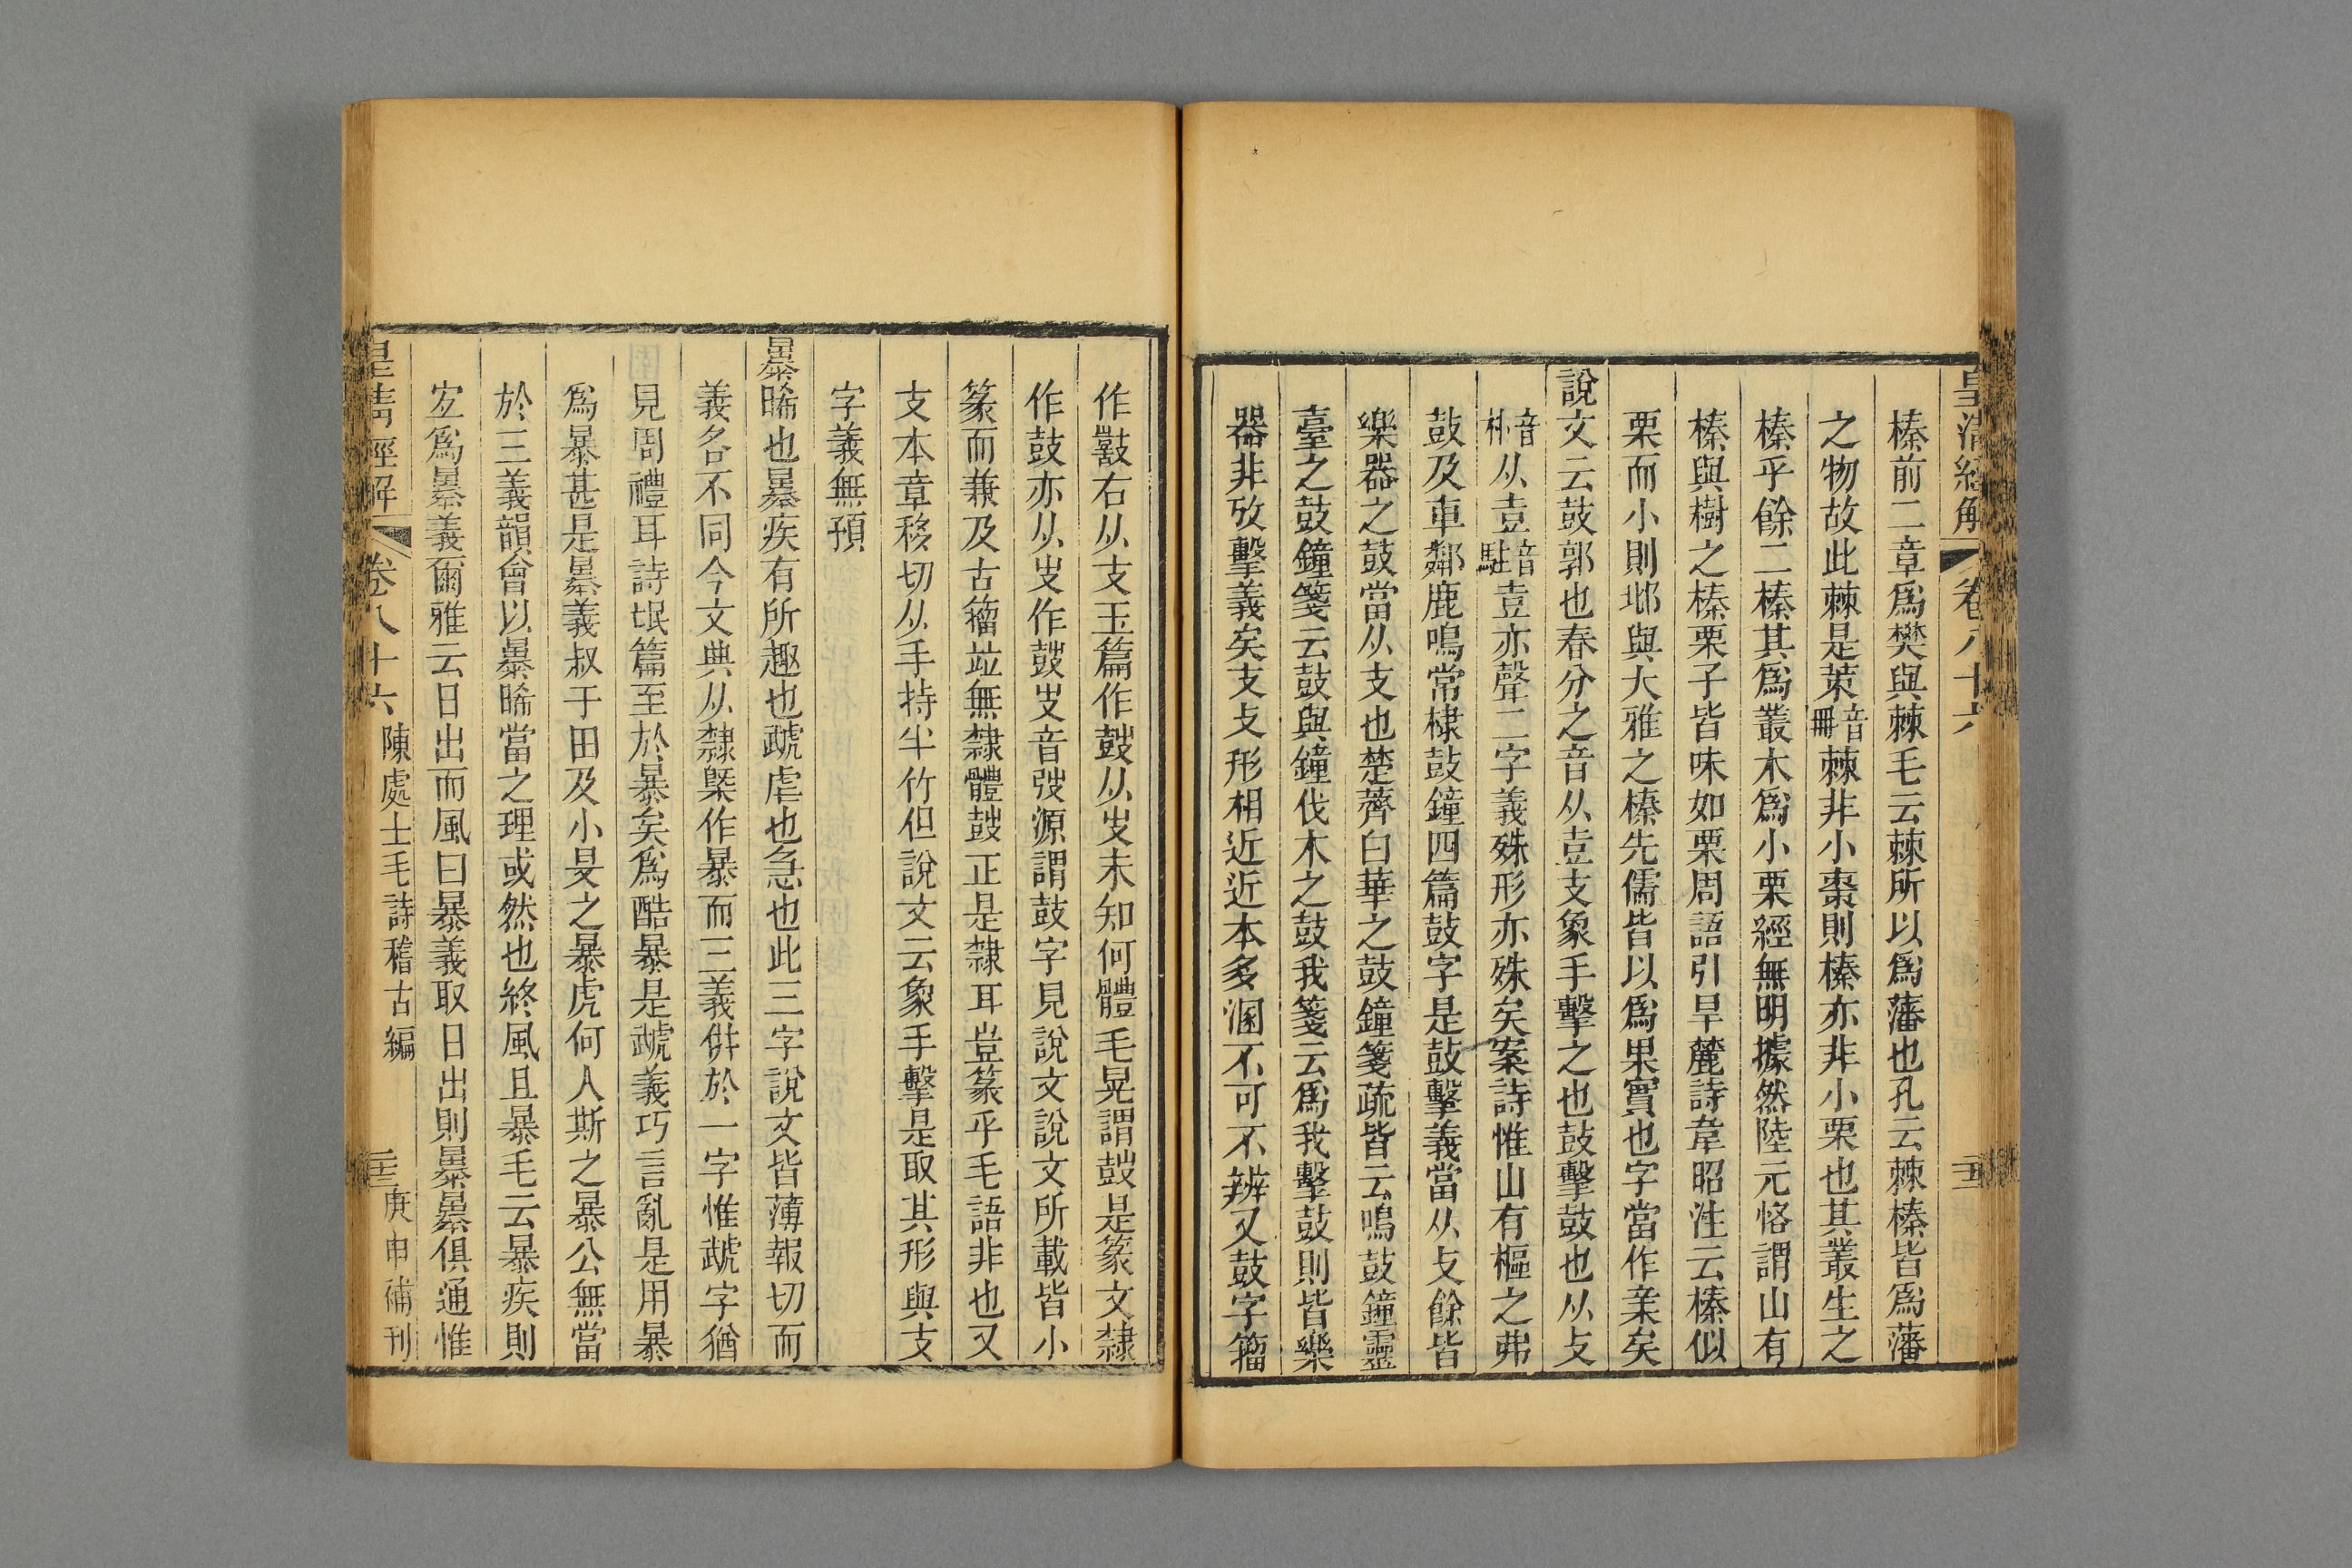 皇清經解 卷八十六
榛前二章爲樊與棘毛云棘所以爲藩也孔云棘榛皆爲藩
之物故此棘是茦音冊棘非小棗則榛亦非小栗也其叢生之
榛乎餘二榛其爲叢木爲小栗經無明據然陸元恪謂山有
榛與樹之榛栗子皆味如栗周語引旱麓詩韋昭注云榛似
栗而小則邶與大雅之榛先儒皆以爲果實也字當作亲矣
說文云鼓郭也春分之音从壴支象手擊之也鼓擊鼓也从攴
从壴音駐壴亦聲二字義殊形亦殊矣案詩惟山有樞之弗
鼓及車鄰鹿鳴常棣鼓鐘四篇鼓字是鼓擊義當从攴餘皆
樂器之鼓當从支也楚薺白華之鼓鐘箋疏皆云鳴鼓鐘靈
臺之鼓鐘箋云鼓與鐘伐木之鼓我箋云爲我擊鼓則皆樂
器非攷擊義矣支攴形相近近本多溷不可不辨又鼓字籀
作鼖右从支玉篇作皷从𡳾未知何體毛晃謂皷是篆文隸
作鼓亦从𡳾作皷𡳾音弢源謂鼓字見說文說文所載皆小
篆而兼及古籀竝無隸體皷正是隸耳豈篆乎毛語非也又
支本章移切从手持半竹但說文云象手擊是取其形與支
字義無預
㬥晞也㬥疾有所趣也虣虐也急也此三字說文皆薄報切而
義各不同今文典从隸槩作暴而三義倂於一字惟虣字猶
見周禮耳詩氓篇至於暴矣爲酷暴是虣義巧言亂是用暴
爲暴甚是㬥義叔于田及小旻之暴虎何人斯之暴公無當
於三義韻會以㬥晞當之理或然也終風且暴毛云暴疾則
宐爲㬥義爾雅云日出而風曰暴義取日出則㬥㬥俱通惟
皇清經解 卷八十六 陳處士毛詩稽古編 庚申補刊